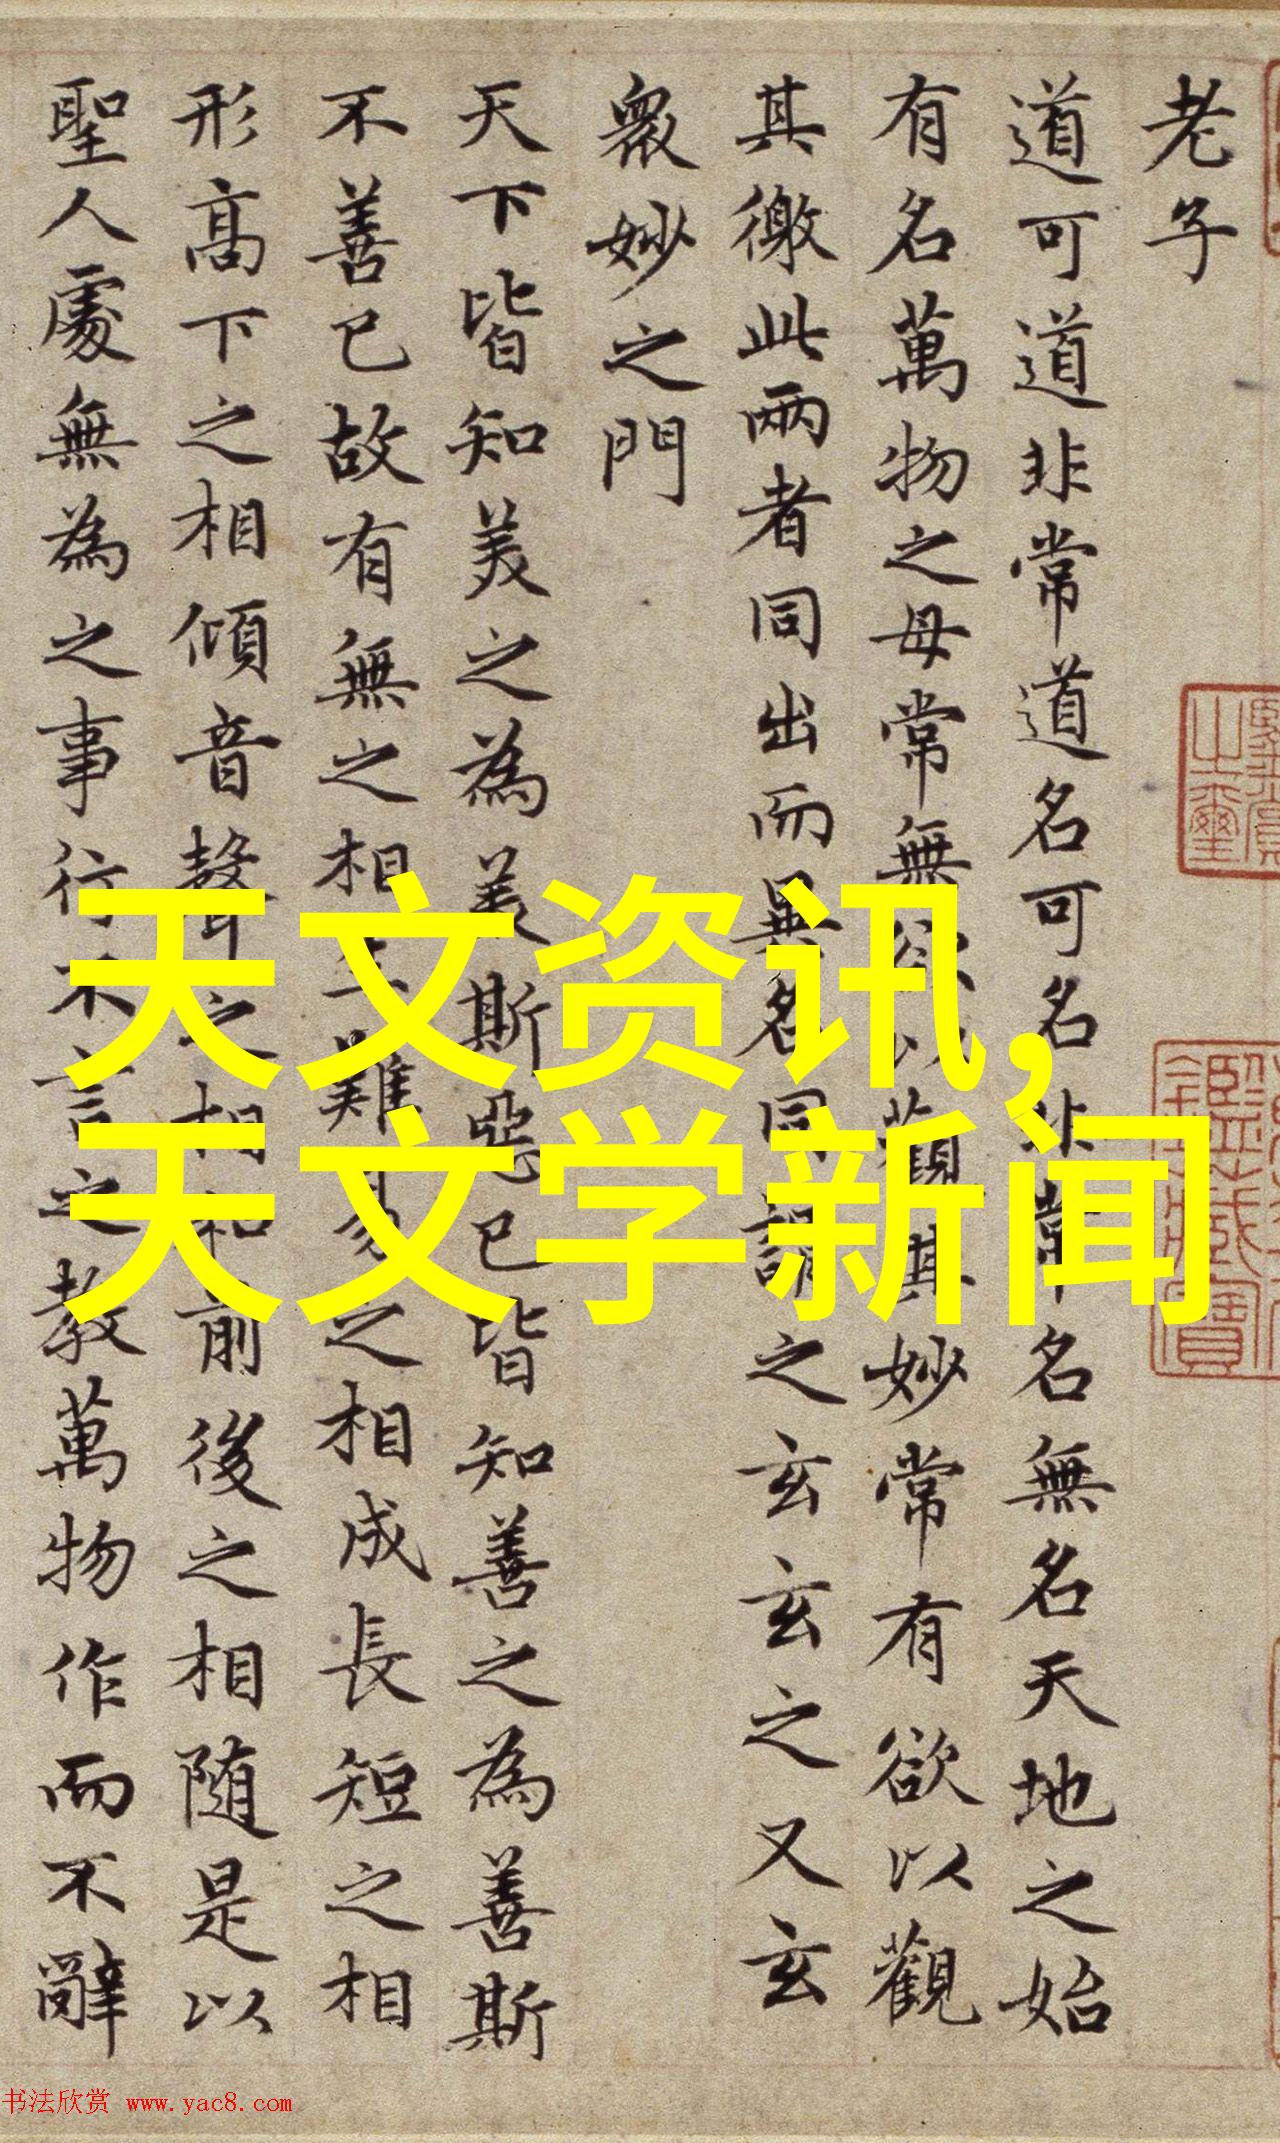 老子
道可道非常道名可名非常名無名天地之始
有名萬物之母常無欲以觀其妙常有欲以觀
其徼此兩者同出而異名同謂之玄玄之又玄
衆妙之門
天下皆知美之為美斯惡已皆知善之為善斯
不善已故有無之相生難易之相成長短之相
形高下之相傾音聲之相和前後之相随是以
聖人處無為之事行不言之教萬物作而不辭
天文资讯,
天文学新闻
书法欣赏 www.yac8.com